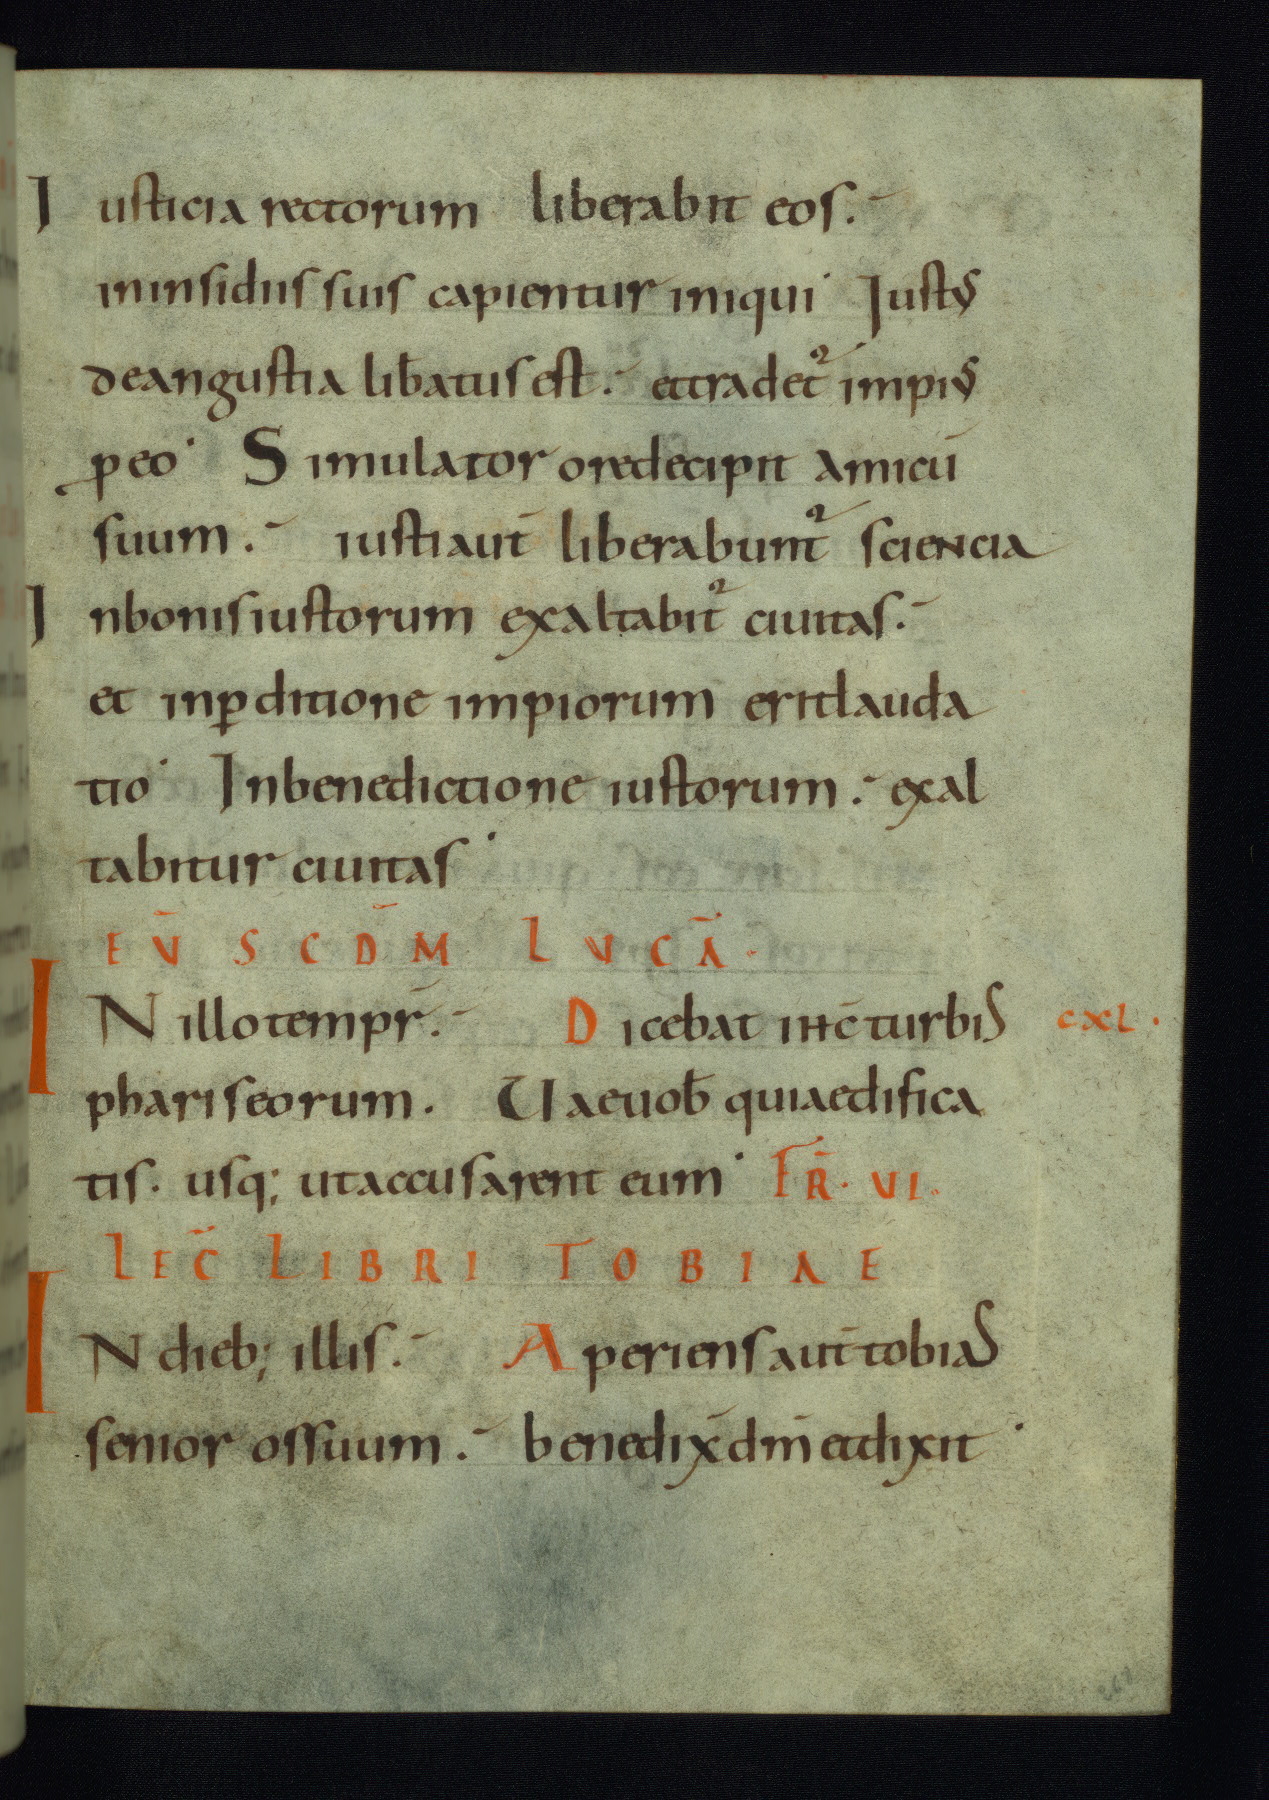 Iusticia rectorum liberabit eos.
in insidiis suis capientur iniqui Iustꝰ
de angustia lib̅atus est. et tradet᷑ impiꝰ
ꝑ eo Simulator ore decipit amicū
suum. iusti aut̅ liberabunt᷑ sciencia
In bonis iustorum exaltabit᷑ ciuitas.
et in ꝑditione impiorum erit lauda
tio In benedictione iustorum. exal
tabitur ciuitas
EV̅ SCD̅M LVCA̅.
IN illo tempr̅. Dicebat ih̅c turbis CXL.
phariseorum. Uae uob̅ quia edifica
tis. usq; ut accusarent eum FR̅. VI.
LEC̅ LIBRI TOBIAE
IN dieb; illis. Aperiens aut̅ tobias
senior os suum. benedix̅ dm̅ et dixit